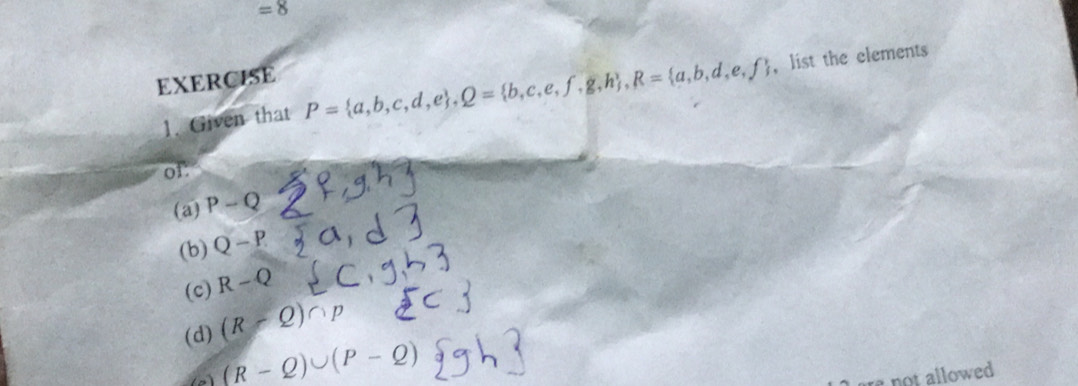 = 8
EXERCISE
1. Given that P = {a,b,c,d,e}, Q = {b,c,e,f,g,h}, R = {a,b,d,e,f}, list the elements
of:
(a) P – Q {f,g,h}
(b) Q – P {a, d}
(c) R – Q {c,g,h}
(d) (R – Q)∩P {c}
(R – Q)∪(P – Q) {gh}
not allowed